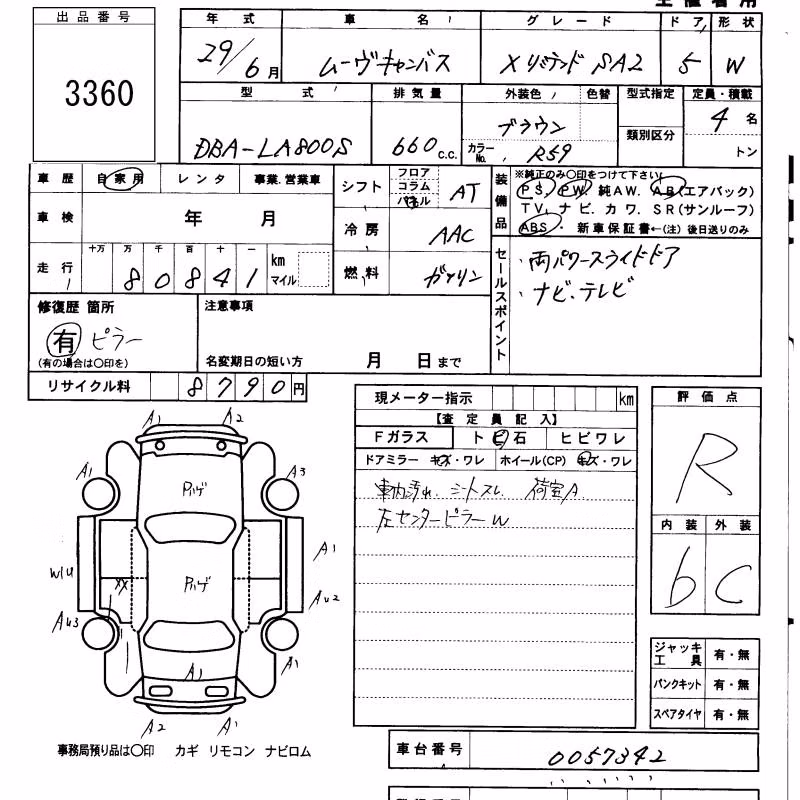 出品番号
3360
年式 車名 グレード ドア 形状
29/6月 ムーヴキャンバス Xリミテッド SA2 5 W
型式 排気量 外装色 色替 型式指定 定員・積載
DBA-LA800S 660 c.c. ブラウン カラーNo. R59 類別区分 4名 トン
車歴 自家用 レンタ 事業.営業車
車検 年 月
走行 十万 万 千 百 十 一 km マイル
80841
シフト フロア コラム パネル AT
冷房 AAC
燃料 ガソリン
装備品
※純正のみ○印をつけて下さい
PS. PW. 純AW. AB(エアバック)
TV. ナビ. カワ. SR(サンルーフ)
ABS・ 新車保証書←(注)後日送りのみ
セールスポイント
・両パワースライドドア
・ナビ.テレビ
修復歴 箇所
有 ピラー
(有の場合は○印を)
注意事項
名変期日の短い方 月 日まで
リサイクル料 8790円
現メーター指示 km
【査定員記入】
Fガラス トビ石 ヒビワレ
ドアミラー キズ・ワレ ホイール(CP) キズ・ワレ
車内汚れ. シートスレ. 荷室A
左センターピラーW
評価点
R
内装 外装
b C
A1 A2
A1 A3
A1
W1U XX AU2
AU3 A1
A1
A2 A1
ジャッキ工具 有・無
パンクキット 有・無
スペアタイヤ 有・無
事務局預り品は○印 カギ リモコン ナビロム
車台番号 0057342